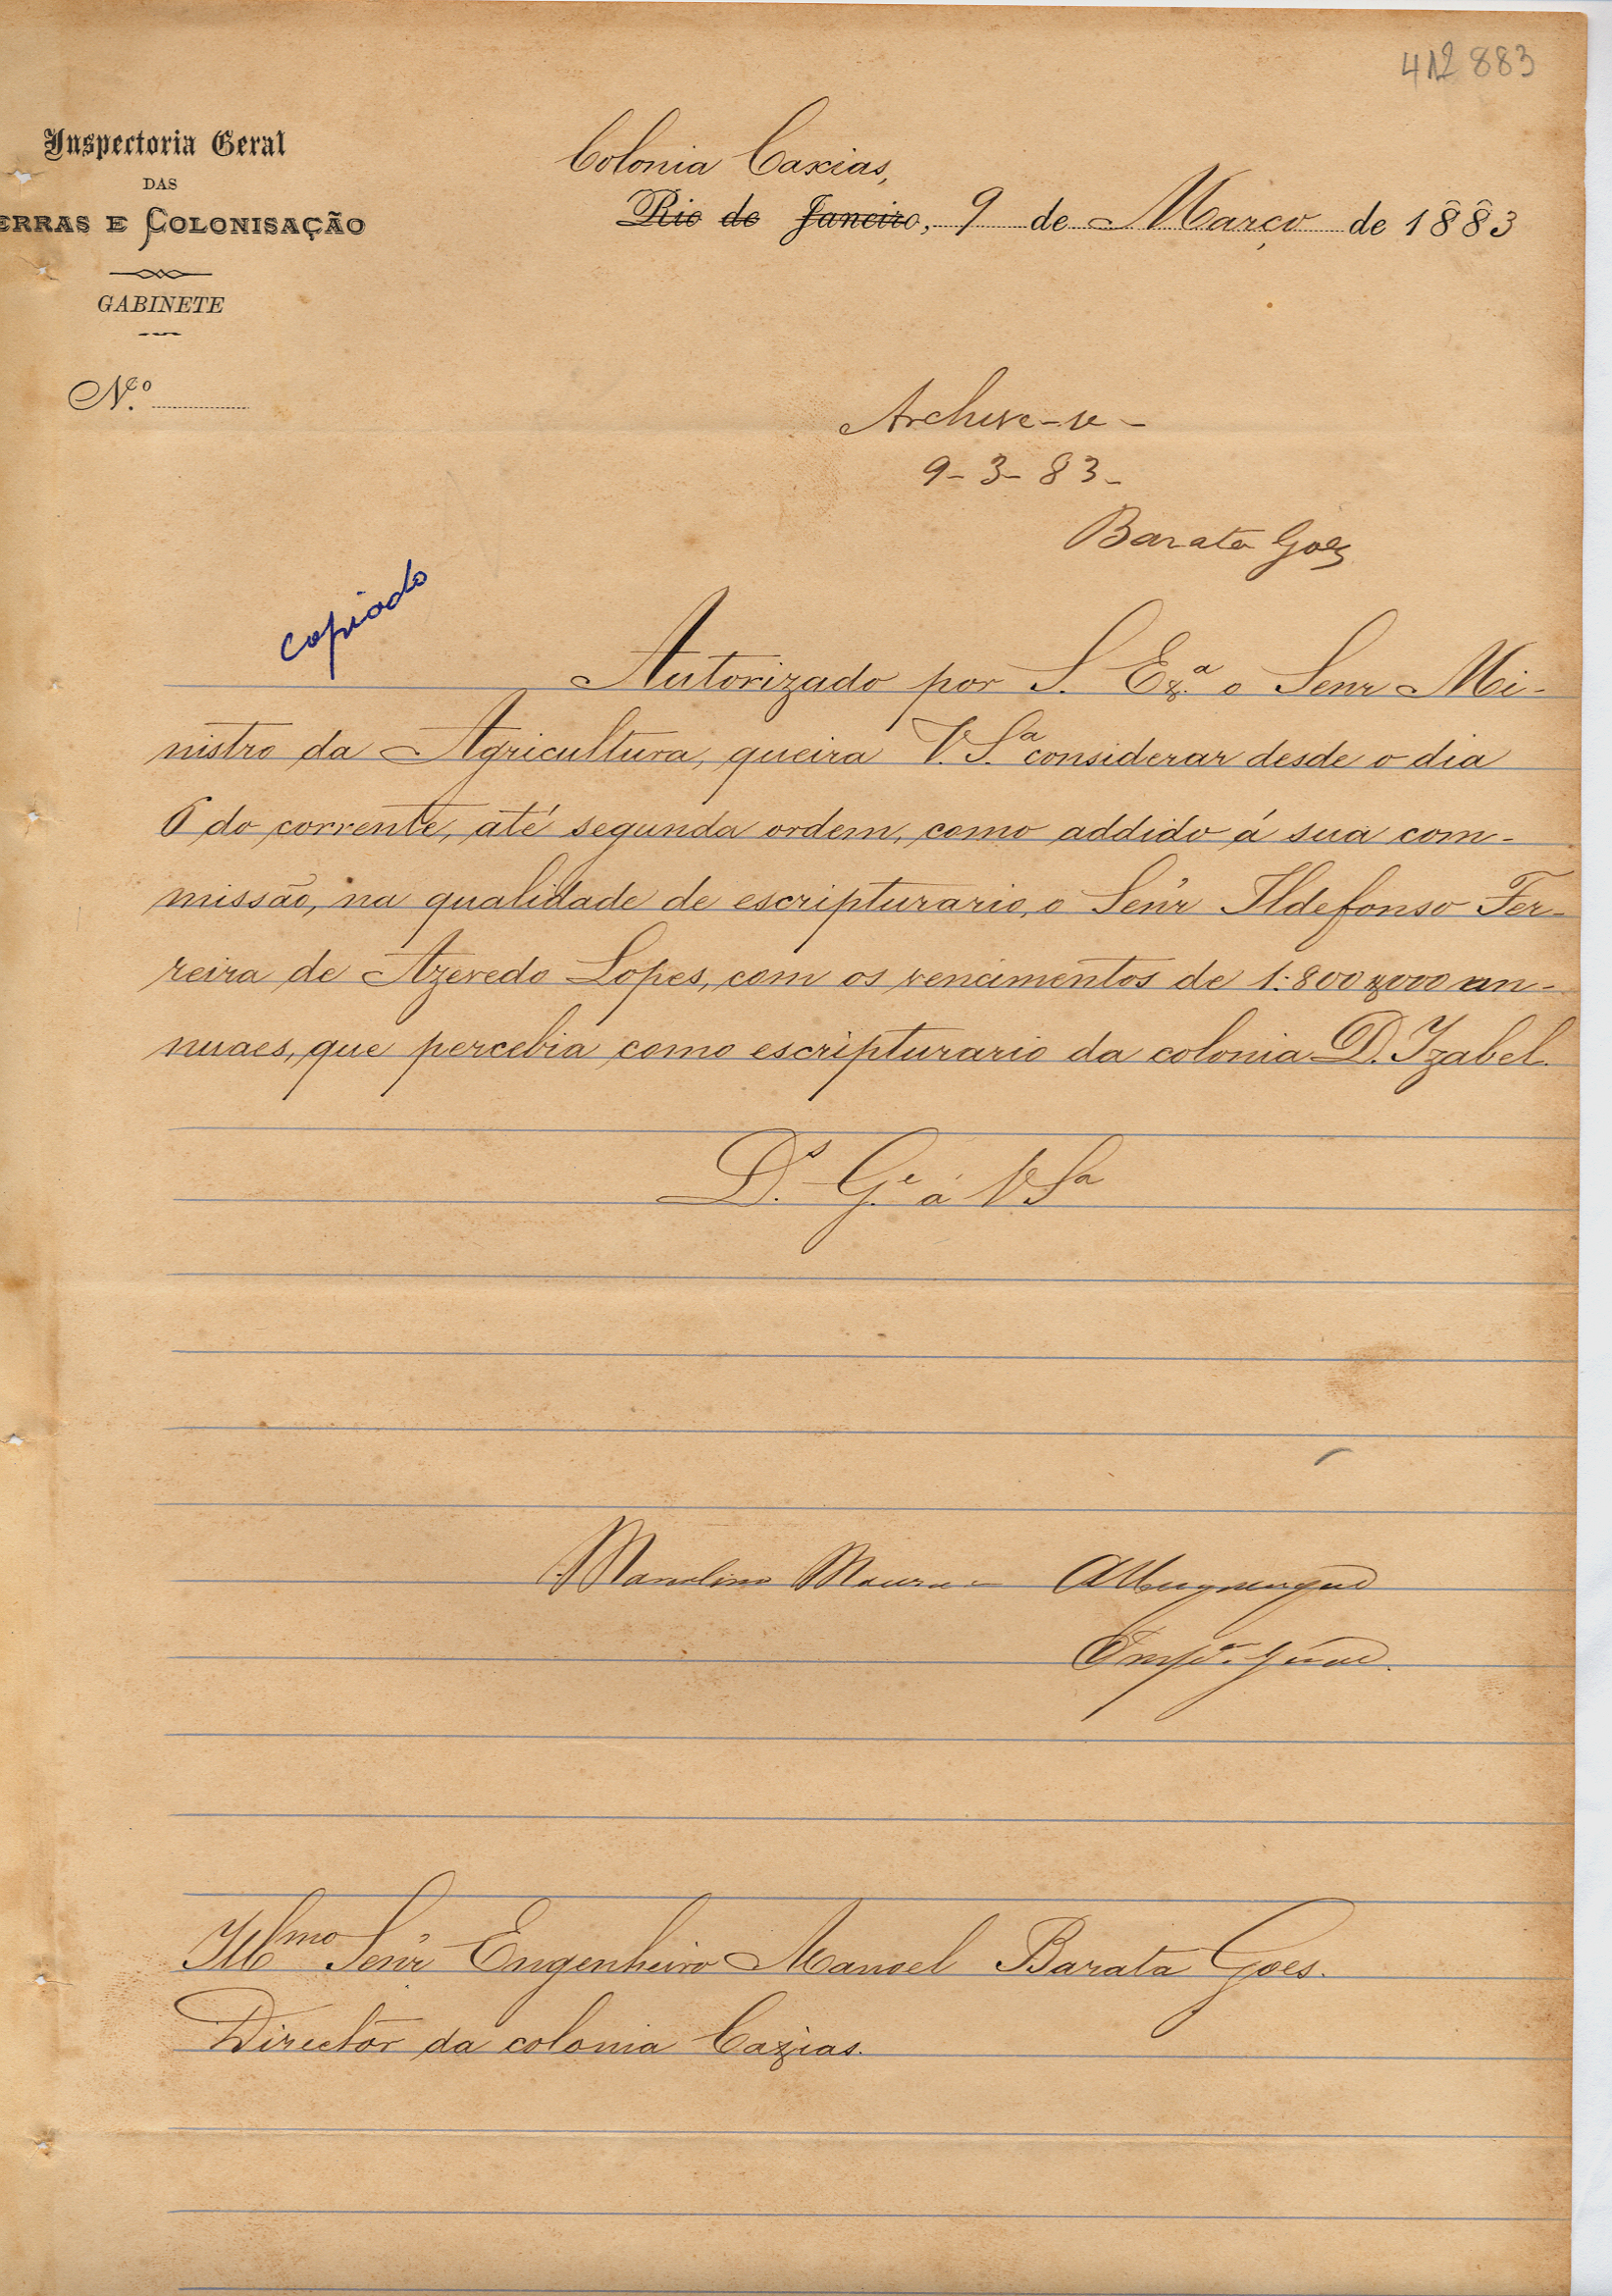 412883
Inspectoria Geral
DAS
ERRAS E COLONISAÇÃO
GABINETE
N.º
Colonia Caxias,
Rio de Janeiro, 9 de Março de 1883
Archive-se-
9-3-83-
Barata Goes
copiado
Autorizado por S. Exª. o Senr Mi-
nistro da Agricultura, queira V. Sª. considerar desde o dia
6 do corrente, até segunda ordem, como addido á sua com-
missão, na qualidade de escripturario, o Senr Ildefonso Fer-
reira de Azevedo Lopes, com os vencimentos de 1:800$000 an-
nuaes, que percebia como escripturario da colonia D. Izabel.
Ds. Ge. á V Sª
Manolino Moura Albuquerque
Illmo Senr Engenheiro Manoel Barata Goes.
Director da colonia Caxias.